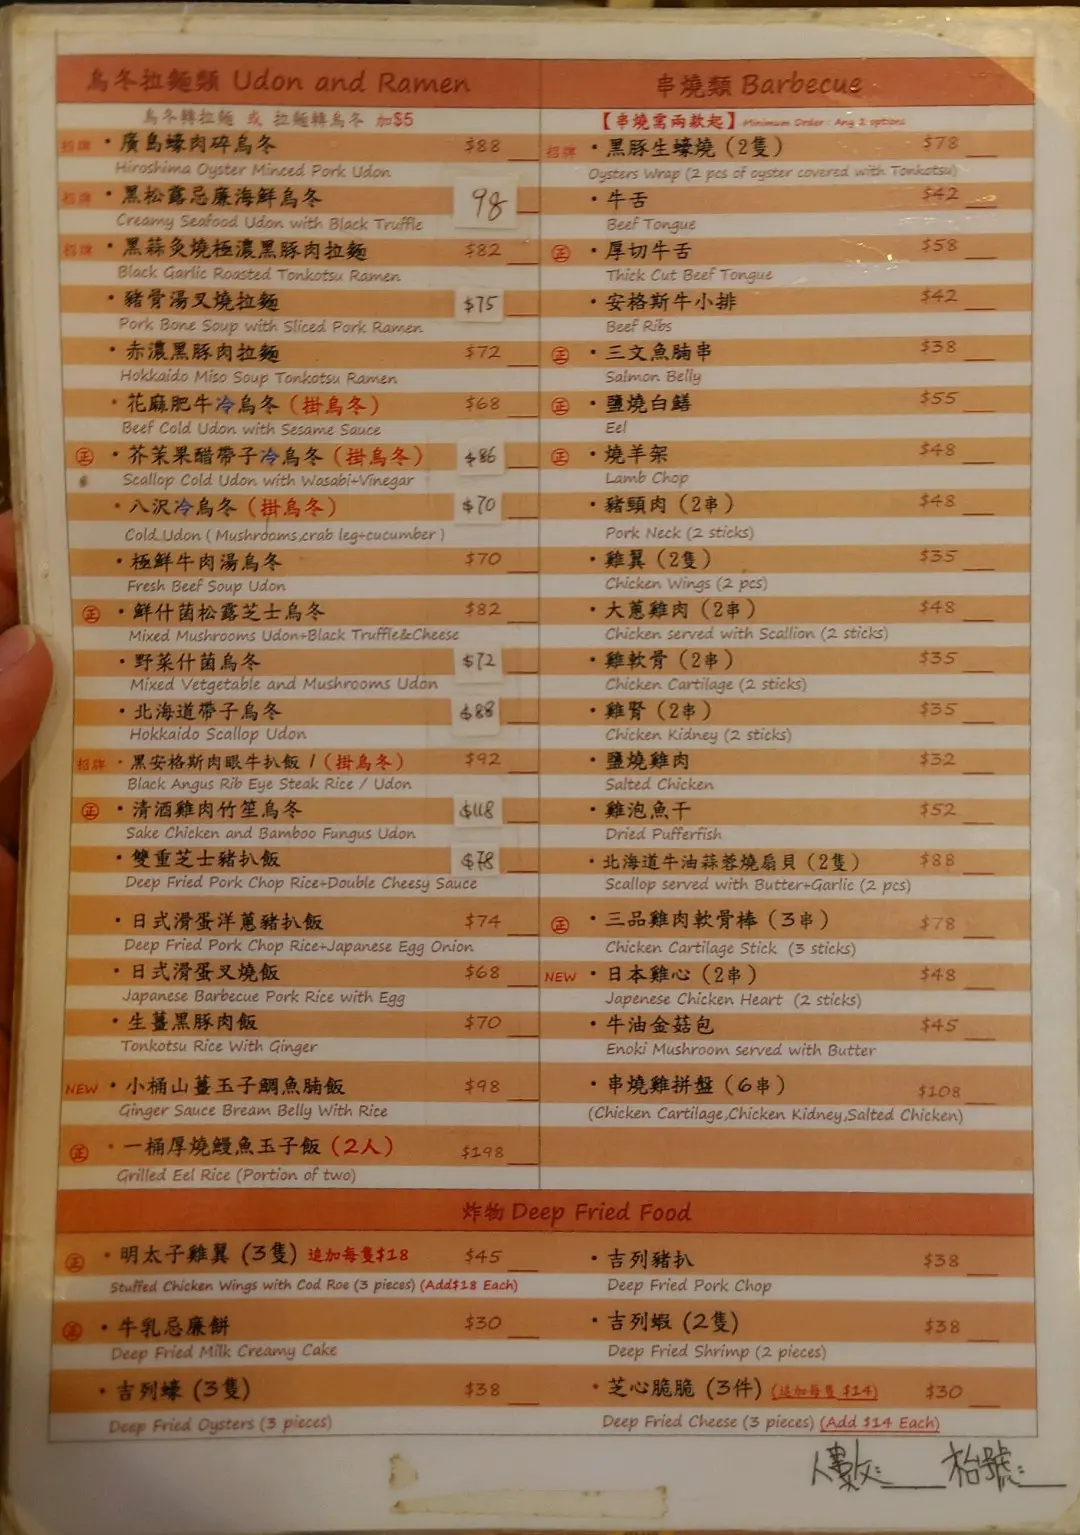 烏冬拉麵類 Udon and Ramen
烏冬轉拉麵 或 拉麵轉烏冬 加$5
招牌 ・廣島蠔肉碎烏冬 $88
Hiroshima Oyster Minced Pork Udon
招牌 ・黑松露忌廉海鮮烏冬 98
Creamy Seafood Udon with Black Truffle
招牌 ・黑蒜炙燒極濃黑豚肉拉麵 $82
Black Garlic Roasted Tonkotsu Ramen
・豬骨湯叉燒拉麵 $75
Pork Bone Soup with Sliced Pork Ramen
・赤濃黑豚肉拉麵 $72
Hokkaido Miso Soup Tonkotsu Ramen
・花麻肥牛冷烏冬 (掛烏冬) $68
Beef Cold Udon with Sesame Sauce
正 ・芥茉果醋帶子冷烏冬 (掛烏冬) $86
Scallop Cold Udon with Wasabi+Vinegar
・八沢冷烏冬 (掛烏冬) $70
Cold Udon ( Mushrooms,crab leg+cucumber )
・極鮮牛肉湯烏冬 $70
Fresh Beef Soup Udon
正 ・鮮什菌松露芝士烏冬 $82
Mixed Mushrooms Udon+Black Truffle&Cheese
・野菜什菌烏冬 $72
Mixed Vetgetable and Mushrooms Udon
・北海道帶子烏冬 $88
Hokkaido Scallop Udon
招牌 ・黑安格斯肉眼牛扒飯 / (掛烏冬) $92
Black Angus Rib Eye Steak Rice / Udon
正 ・清酒雞肉竹笙烏冬 $118
Sake Chicken and Bamboo Fungus Udon
・雙重芝士豬扒飯 $78
Deep Fried Pork Chop Rice+Double Cheesy Sauce
・日式滑蛋洋蔥豬扒飯 $74
Deep Fried Pork Chop Rice+Japanese Egg Onion
・日式滑蛋叉燒飯 $68
Japanese Barbecue Pork Rice with Egg
・生薑黑豚肉飯 $70
Tonkotsu Rice With Ginger
NEW ・小桶山薑玉子鯛魚腩飯 $98
Ginger Sauce Bream Belly With Rice
正 ・一桶厚燒鰻魚玉子飯 (2人) $198
Grilled Eel Rice (Portion of two)
串燒類 Barbecue
【串燒需兩款起】 Minimum Order : Any 2 options
招牌 ・黑豚生蠔燒 (2隻) $78
Oysters Wrap (2 pcs of oyster covered with Tonkotsu)
・牛舌 $42
Beef Tongue
正 ・厚切牛舌 $58
Thick Cut Beef Tongue
・安格斯牛小排 $42
Beef Ribs
正 ・三文魚腩串 $38
Salmon Belly
正 ・鹽燒白鱔 $55
Eel
正 ・燒羊架 $48
Lamb Chop
・豬頸肉 (2串) $48
Pork Neck (2 sticks)
・雞翼 (2隻) $35
Chicken Wings (2 pcs)
・大蔥雞肉 (2串) $48
Chicken served with Scallion (2 sticks)
・雞軟骨 (2串) $35
Chicken Cartilage (2 sticks)
・雞腎 (2串) $35
Chicken Kidney (2 sticks)
・鹽燒雞肉 $32
Salted Chicken
・雞泡魚干 $52
Dried Pufferfish
・北海道牛油蒜蓉燒扇貝 (2隻) $88
Scallop served with Butter+Garlic (2 pcs)
正 ・三品雞肉軟骨棒 (3串) $78
Chicken Cartilage Stick (3 sticks)
NEW ・日本雞心 (2串) $48
Japenese Chicken Heart (2 sticks)
・牛油金菇包 $45
Enoki Mushroom served with Butter
・串燒雞拼盤 (6串) $108
(Chicken Cartilage,Chicken Kidney,Salted Chicken)
炸物 Deep Fried Food
正 ・明太子雞翼 (3隻) 追加每隻$18 $45
Stuffed Chicken Wings with Cod Roe (3 pieces) (Add$18 Each)
正 ・牛乳忌廉餅 $30
Deep Fried Milk Creamy Cake
・吉列蠔 (3隻) $38
Deep Fried Oysters (3 pieces)
・吉列豬扒 $38
Deep Fried Pork Chop
・吉列蝦 (2隻) $38
Deep Fried Shrimp (2 pieces)
・芝心脆脆 (3件) (追加每隻 $14) $30
Deep Fried Cheese (3 pieces) (Add $14 Each)
人數: 枱號: